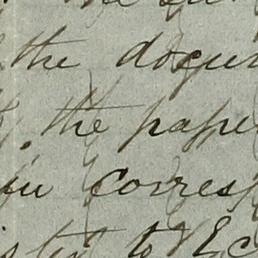 the docu
the pape
in corres
to Ec